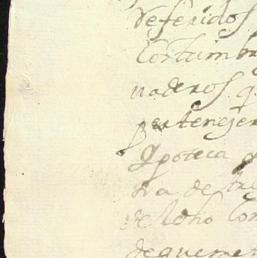 deferidos
Costumbr
naderos q
pertenejen
Ypoteca
tra de tre
de dho Con
dequemen